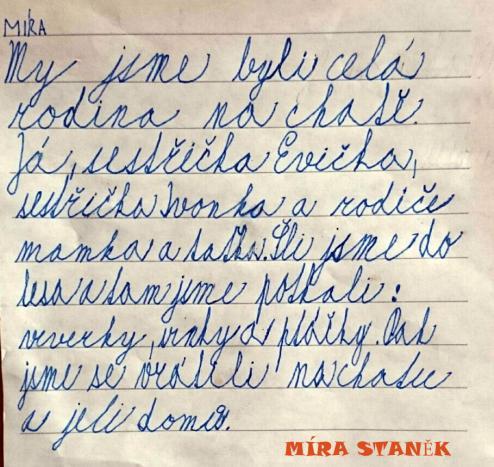 MÍRA
My jsme byli celá
rodina na chatě.
Já, sestřička Evička,
sestřička Ivonka a rodiče
mamka a taťka. Šli jsme do
lesa a tam jsme potkali:
vrverky, srnky a ptáčky. Pak
jsme se vrátili na chatu
a jeli domů.
MÍRA STANĚK